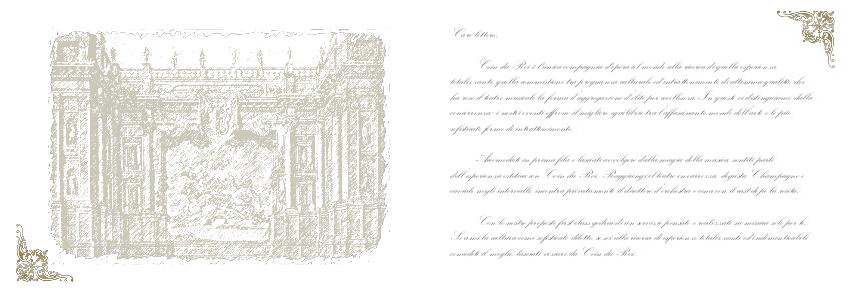 Caro lettore,
Coin du Roi è l'unica compagnia d'opera al mondo alla ricerca di quella esperienza
totalizzante, quella connessione tra pregnanza culturale ed intrattenimento di altissima qualità, che
ha reso il teatro musicale la forma d'aggregazione d'élite per eccellenza. In questo ci distinguiamo dalla
concorrenza: i nostri eventi offrono il migliore equilibrio tra l'affascinante mondo dell'arte e le più
sofisticate forme di intrattenimento.
Accomodati in prima fila e lasciati avvolgere dalla magia della musica, sentiti parte
dell'esperienza estetica con Coin du Roi. Raggiungi il teatro in carrozza, degusta Champagne e
caviale negli intervalli, incontra privatamente il direttore d'orchestra e cena con il cast dopo la recita.
Con le nostre proposte first class godrai di un servizio pensato e realizzato su misura solo per te.
Se ami la cultura come sofisticato diletto, se sei alla ricerca di esperienze totalizzanti ed indimenticabili
concediti il meglio, lasciati viziare da Coin du Roi.